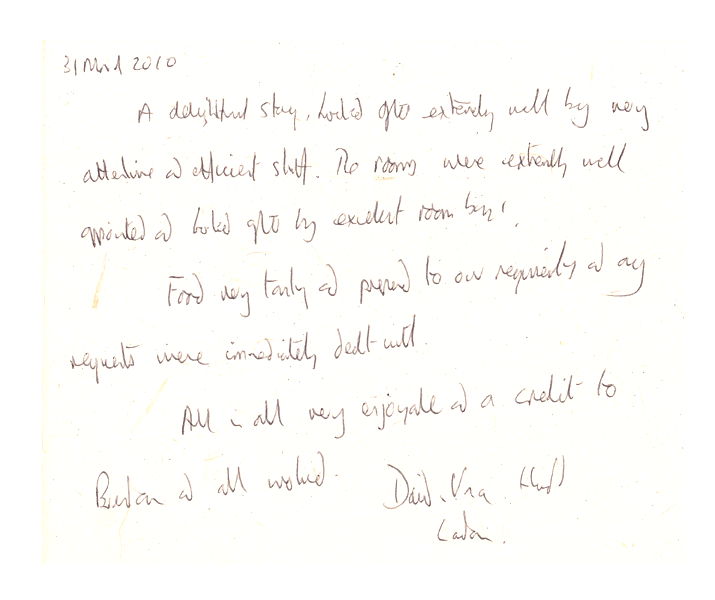 31 March 2010
A delightful stay, looked after extremely well by very
attentive and efficient staff. The rooms were extremely well
appointed and looked after by excellent room boys!
Food very tasty and prepared to our requirements and any
requests were immediately dealt with.
All in all very enjoyable and a credit to
and all involved.
David
London.